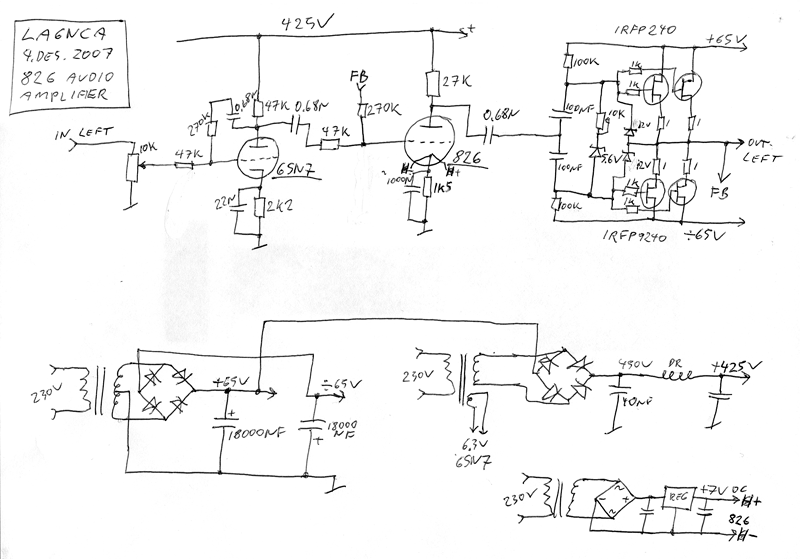 LA6NCA
9.DES.2007
826 AUDIO
AMPLIFIER
425V
+
IRFP240
+65V
100K
1K
1K
27K
FB
0.68N
47K
0.68N
270K
270K
IN LEFT
10K
47K
47K
6SN7
22N
2K2
0.68N
826
1000N
1K5
100NF
100NF
10K
12V
5.6V
12V
1
1
1
1
OUT.
LEFT
FB
1K
1K
100K
IRFP9240
÷65V
230V
+65V
÷65V
+
18000NF
+
18000
NF
230V
6.3V
6SN7
450V
DR
+425V
40NF
230V
~
~
-
+
REG
+7V DC
H+
826
H-